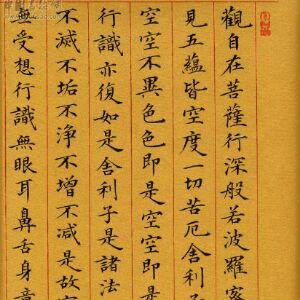 觀自在菩薩行深般若波羅
見五蘊皆空度一切苦厄舍利子
空空不異色色即是空空即是
行識亦復如是舍利子是諸法
不滅不垢不淨不增不減是故空
無受想行識無眼耳鼻舌身意